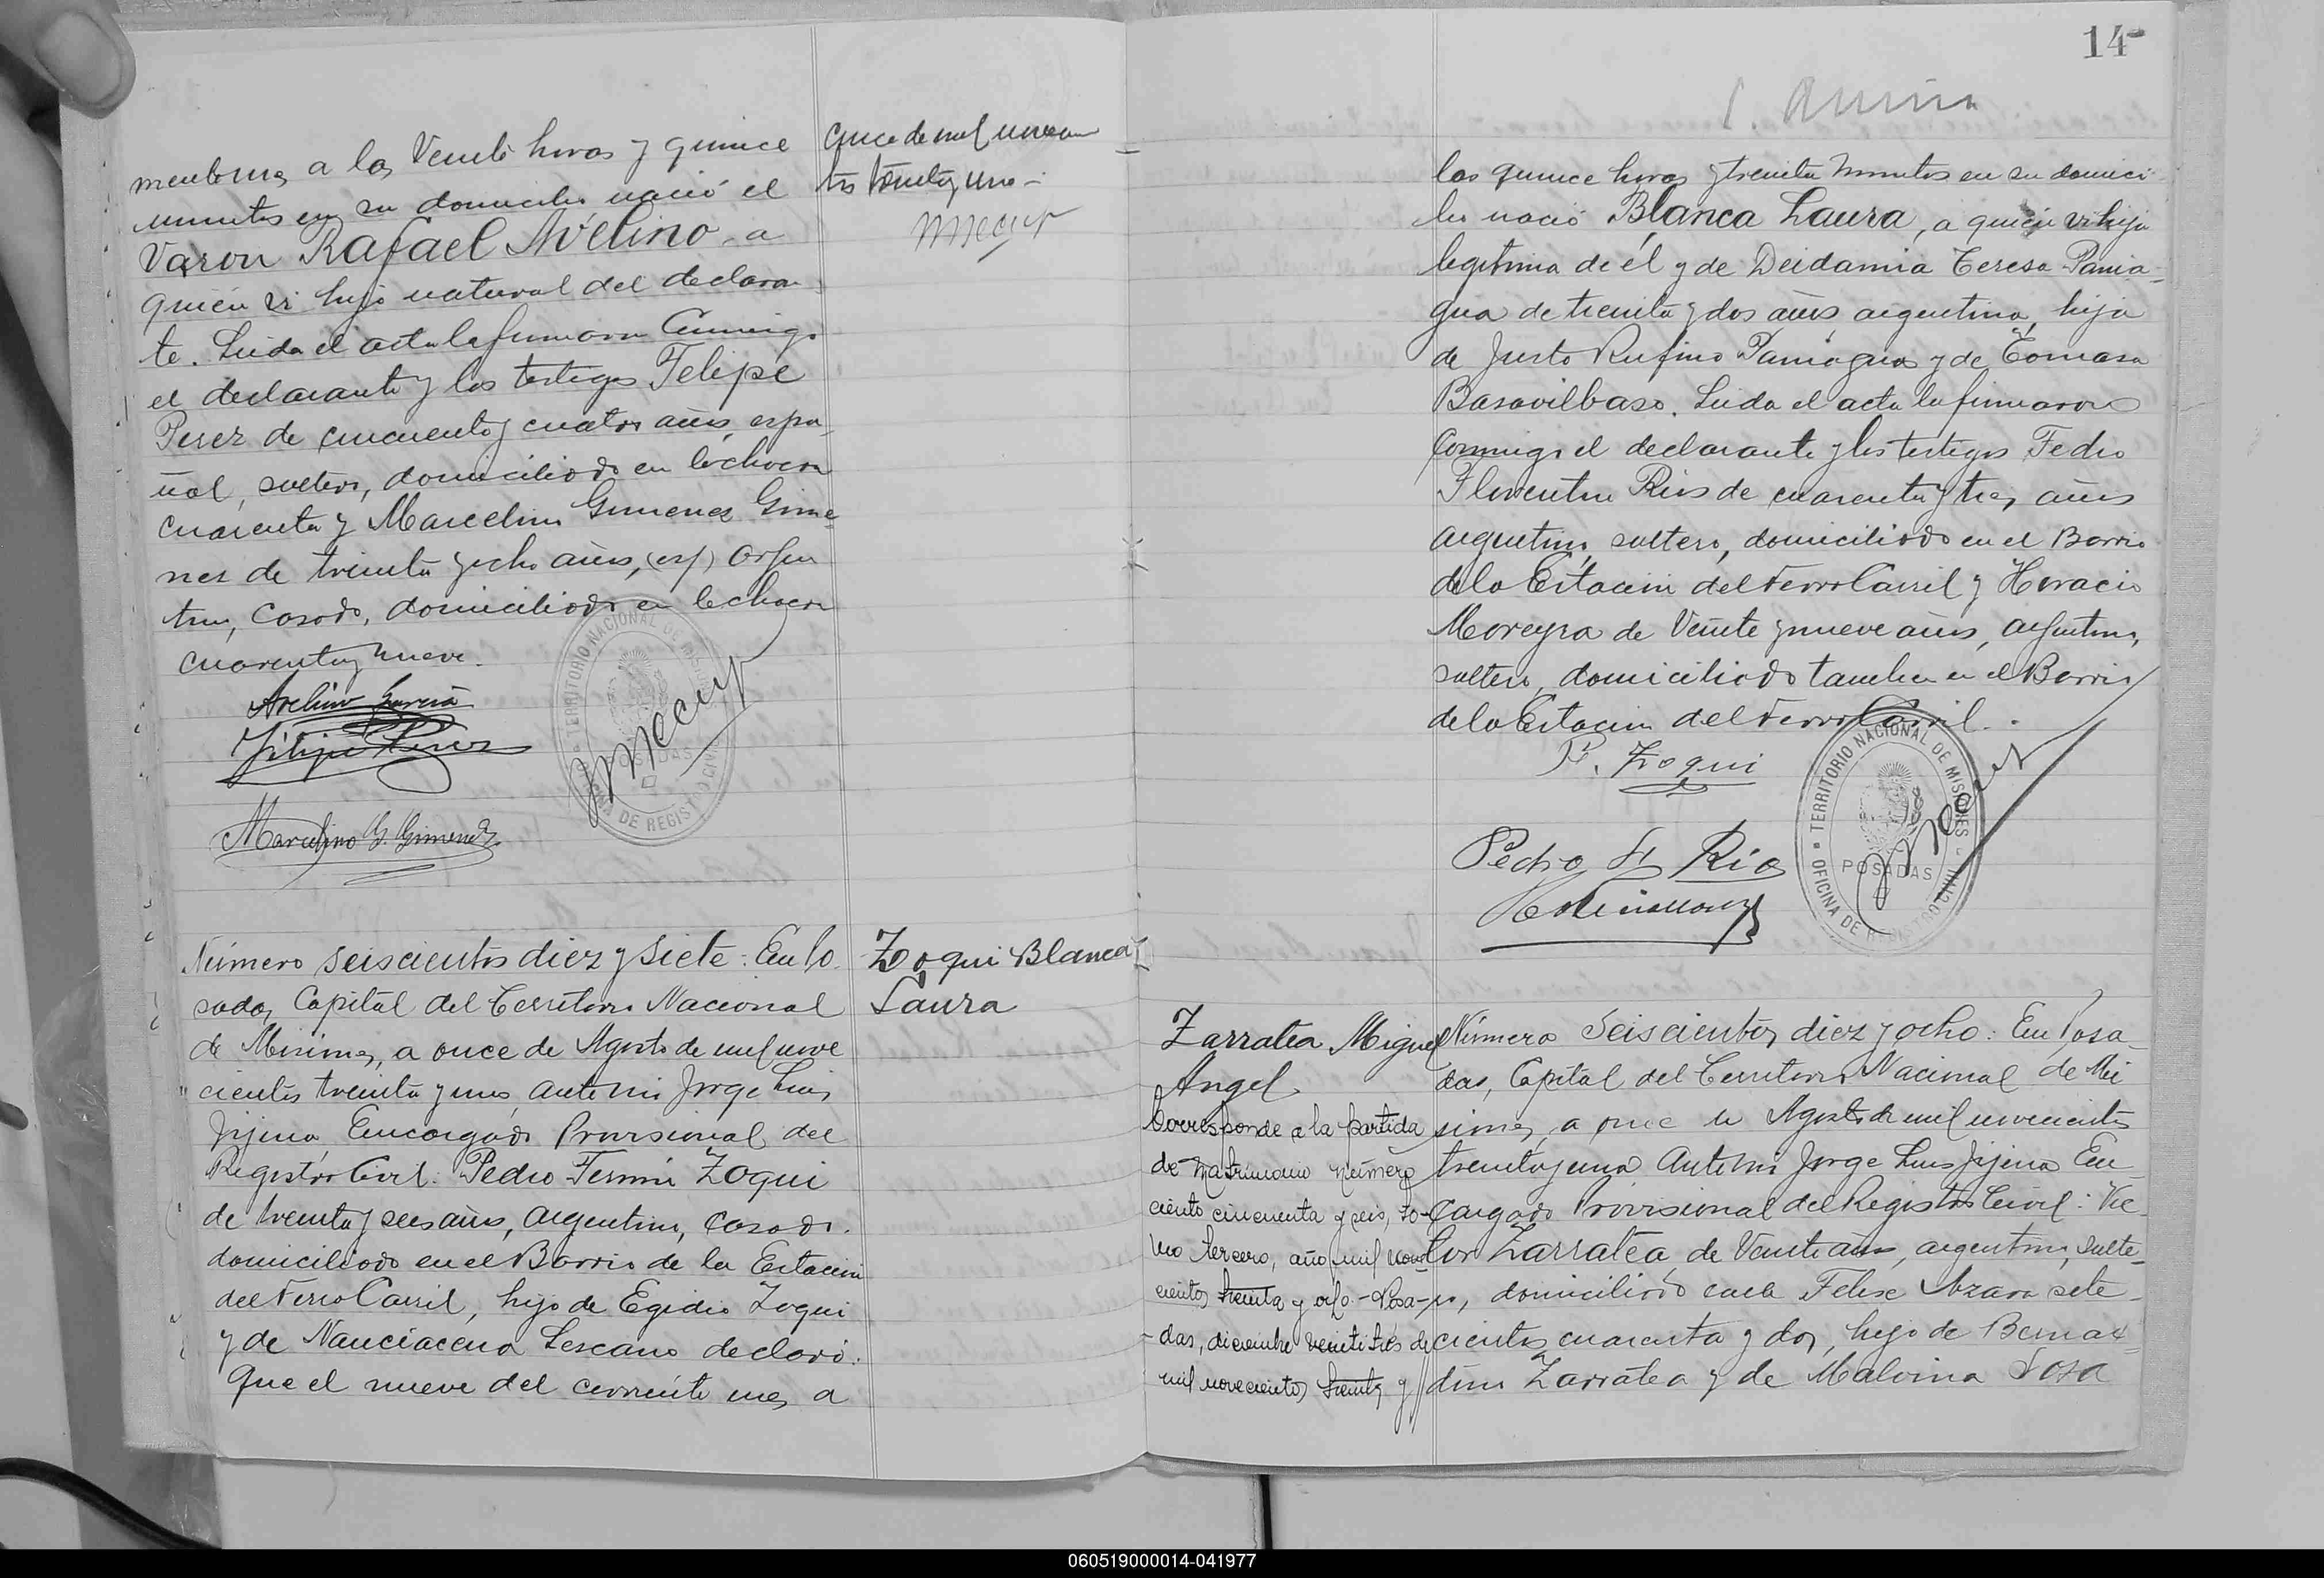 a las Veinte horas y quince
minutos en su domicilio nació el
Varon Rafael Avelino, a
quién es hijo natural del declaran
te. Leida el acta la firmaron Conmigo
el declarante y los testigos Felipe
Perez de cincuenta y cuatro años, espa-
ñol, soltero, domiciliado en la chacra
cuarenta y Marcelino Gimenez Gime-
nez de treinta y ocho años, (esp) argen
tino, Casado, domiciliado en la chacra
cuarenta y nueve.
Avelino Garcia
Felipe Perez
Marcelino G. Gimenez
TERRITORIO NACIONAL DE MISIONES
POSADAS
OFICINA DE REGISTRO CIVIL
once de mil novecien
tos treinta y uno -
Número seiscientos diez y siete: En Po
sadas, Capital del Territorio Nacional
de Misiones, a once de Agosto de mil nove
cientos treinta y uno, ante mi Jorge Luis
Jijena Encargado Provisional del
Registro Civil: Pedro Fermin Zoqui
de treinta y seis años, argentino, casado.
domiciliado en el Barrio de la Estacion
del Ferro Carril, hijo de Egidio Zoqui
y de Nauciacena Lescano declaró:
Que el nueve del corriente mes, a
Zoqui Blanca
Laura
14
las quince horas y treinta minutos en su domici
lio nació Blanca Laura, a quién es hija
legitima de él y de Deidamia Teresa Pania-
gua de treinta y dos años argentina, hija
de Justo Rufino Paniagua y de Tomasa
Basavilbaso. Leida el acta la firmaron
Conmigo el declarante y los testigos Pedro
Florentin Rios de cuarenta y tres años
argentino, soltero, domiciliado en el Barrio
de la Estacion del Ferro Carril y Horacio
Moreyra de Veinte y nueve años, argentino,
soltero, domiciliado tambien en el Barrio
de la Estacion del Ferro Carril.
P. Zoqui
Pedro F. Rios
TERRITORIO NACIONAL DE MISIONES
POSADAS
OFICINA DE REGISTRO CIVIL
Zarratea Miguel
Angel
Corresponde a la partida
de matrimonio número
ciento cincuenta y seis, to-
mo tercero, año mil nove-
cientos treinta y ocho.-Posa-
das, diciembre veintitrés de
mil novecientos treinta y
Número Seiscientos diez y ocho: En Posa-
das, Capital del Territorio Nacional de Mi
siones, a once de Agosto de mil novecientos
treinta y uno Ante mi Jorge Luis Jijena En
cargado Provisional del Registro Civil: Vic-
tor Zarratea, de Veinte años, argentino, solte-
ro, domiciliado calle Felix Azara sete-
cientos cuarenta y dos, hijo de Bernar-
dino Zarratea y de Malvina Sosa
060519000014-041977